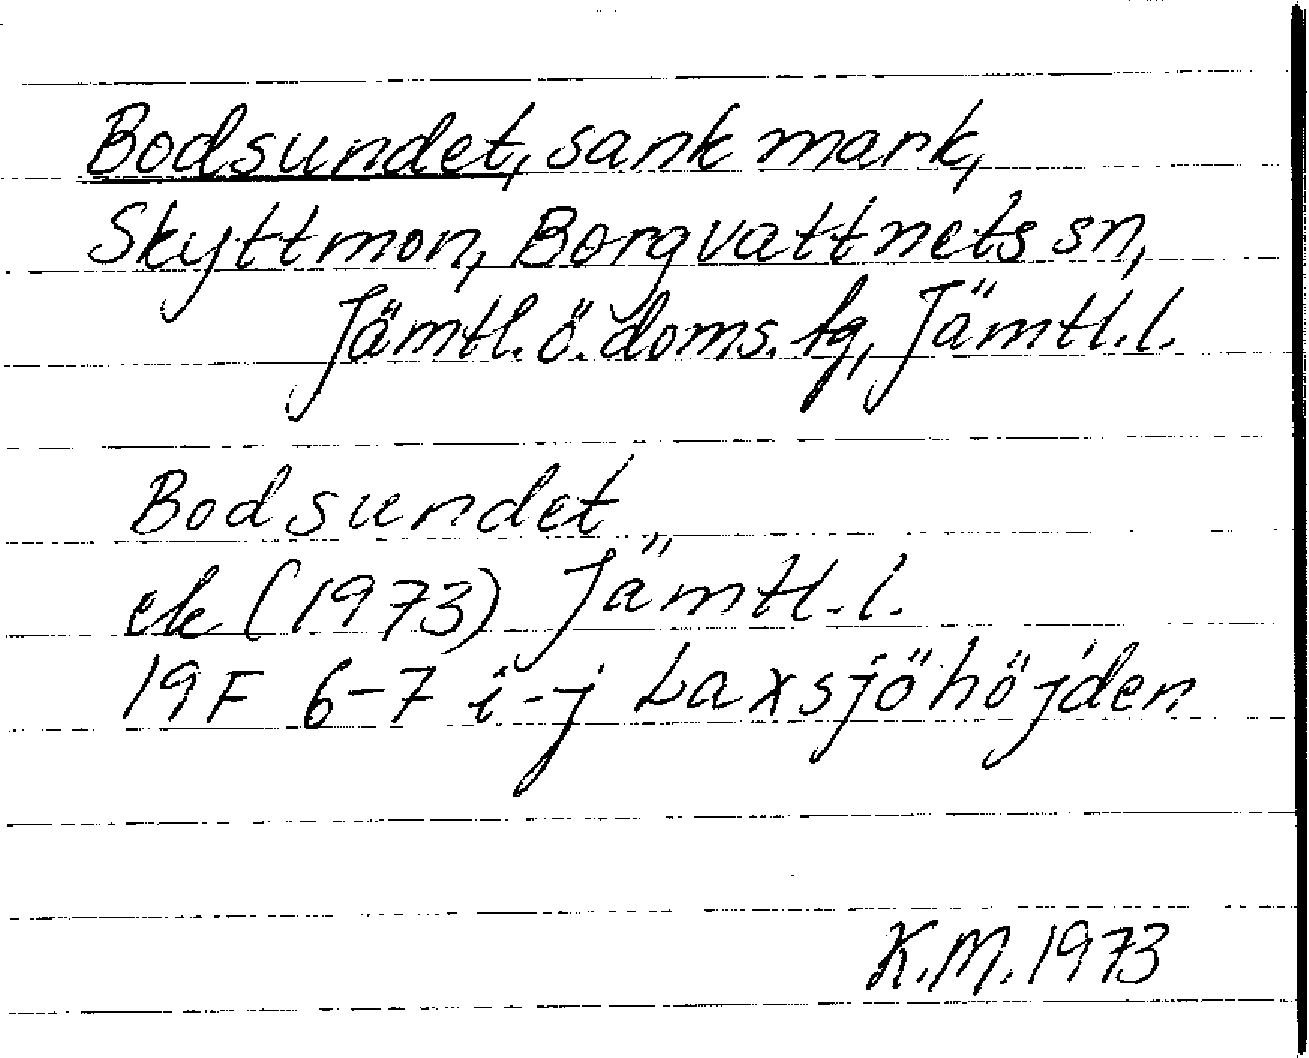 Bodsundet, sank mark,
Skyttmon, Borgvattnets sn,
Jämtl. ö. doms. tg, Jämtl. l.
Bodsundet
ek (1973) Jämtl. l.
19F 6-7 i-j Laxsjöhöjden
K.M. 1973